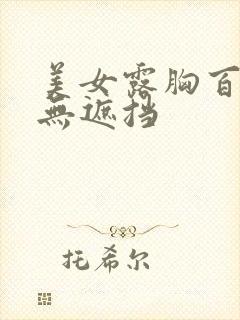 美女露胸百
無遮挡
托希尔